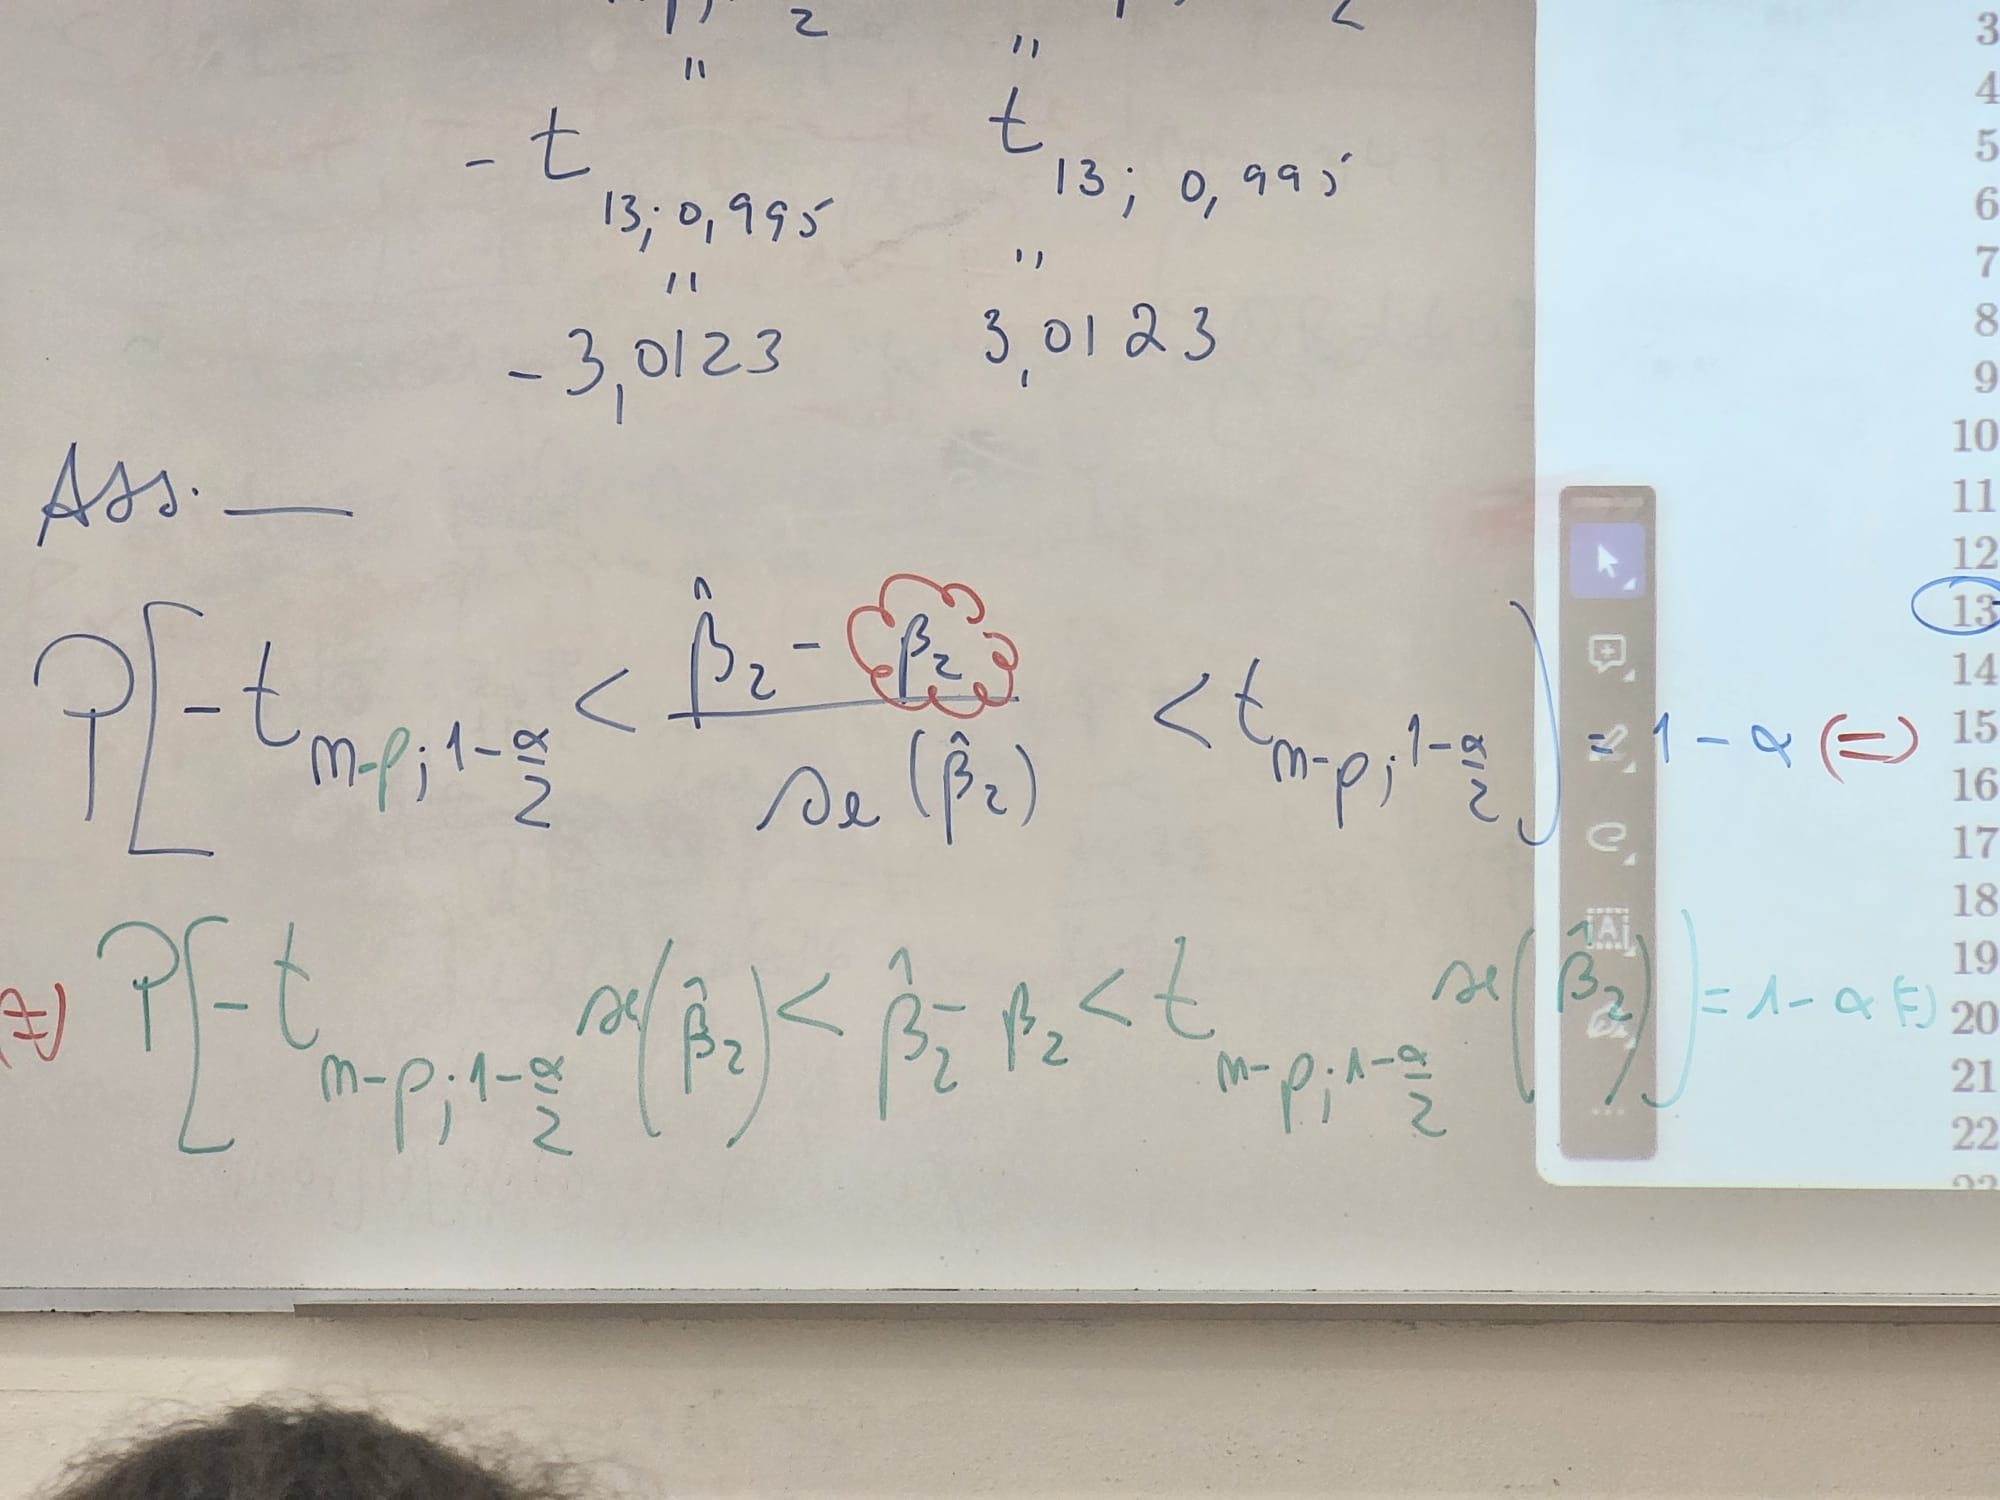 " "
- t 13; 0,995 t 13; 0,995
" "
- 3,0123 3,0123
Ass. —
P[ - t m-p; 1-α/2 < (β̂2 - β2) / se(β̂2) < t m-p; 1-α/2 ] = 1 - α (=)
(=) P[ - t m-p; 1-α/2 se(β̂2) < β̂2 - β2 < t m-p; 1-α/2 se(β̂2) ] = 1 - α (=)
3
4
5
6
7
8
9
10
11
12
13
14
15
16
17
18
19
20
21
22